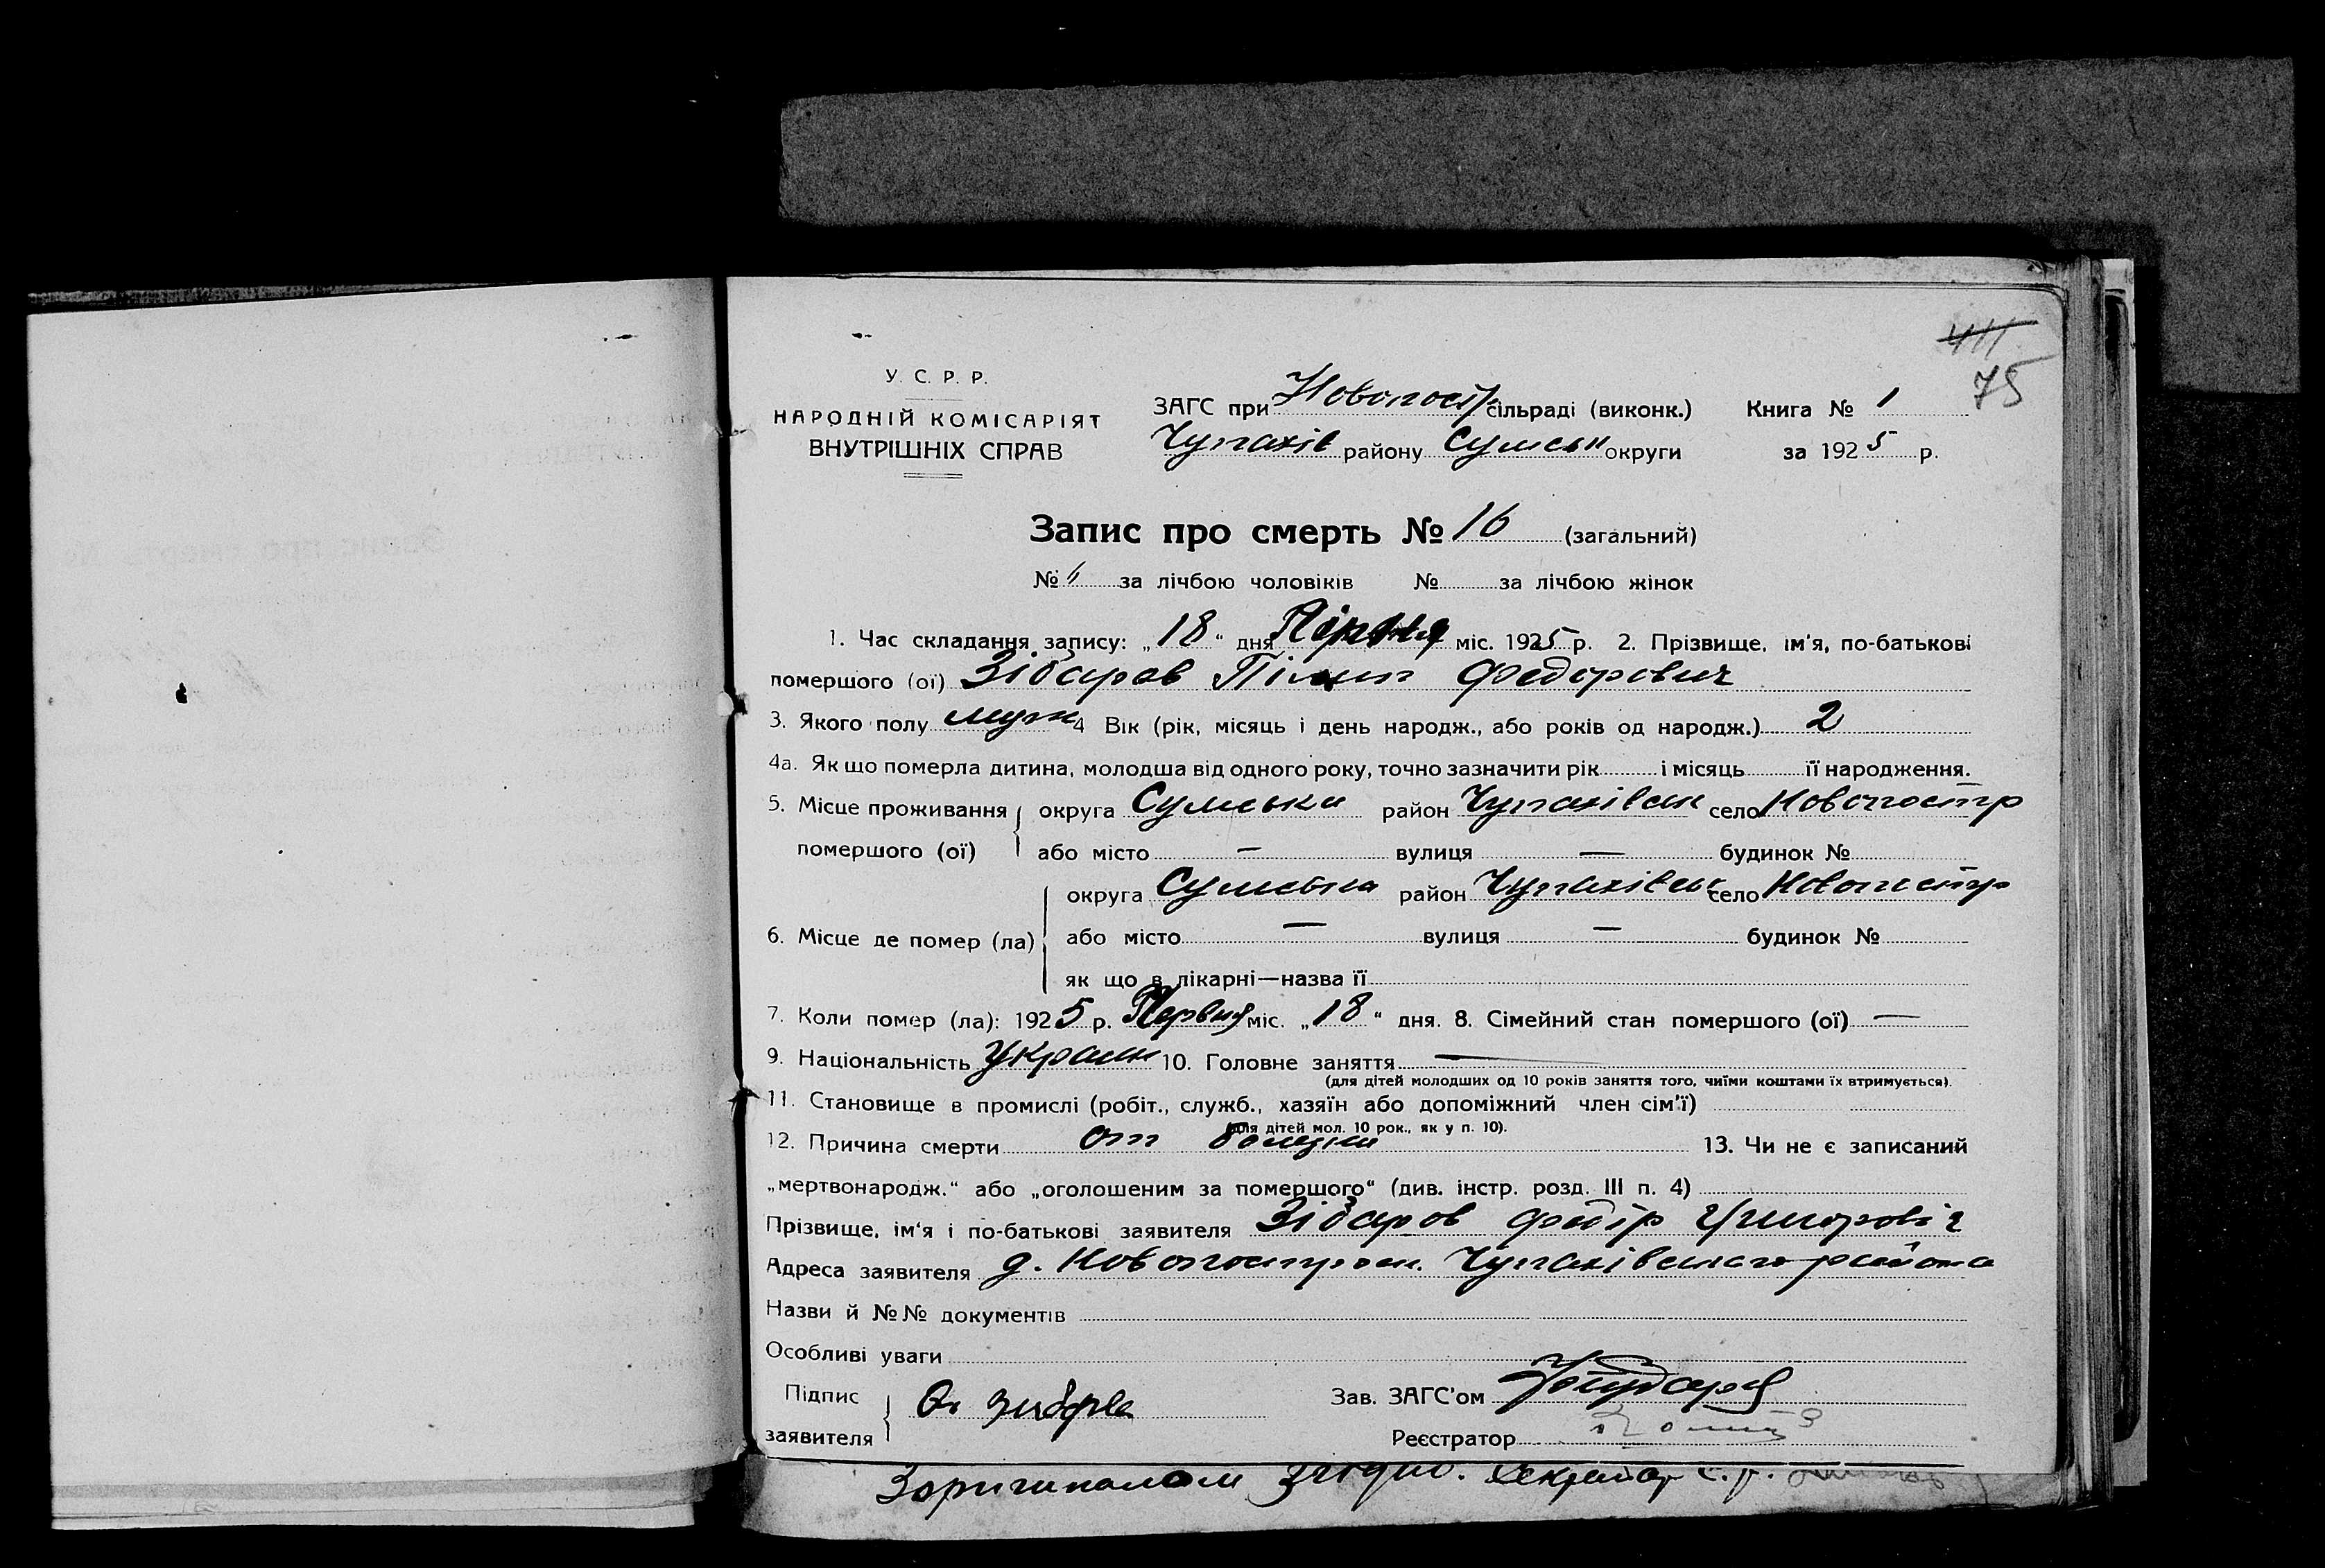 411
75
У. С. Р. Р.
НАРОДНІЙ КОМІСАРІЯТ
ВНУТРІШНІХ СПРАВ
ЗАГС при Новопостр. сільраді (виконк.) Книга № 1
Чупахів району Сумськ округи за 1925 р.
Запис про смерть № 16 (загальний)
№ 11 за лічбою чоловіків № за лічбою жінок
1. Час складання запису: „18“ дня міс. 1925 р. 2. Прізвище, ім'я, по-батькові
помершого (ої) Зібаров Пілип Федорович
3. Якого полу муж 4 Вік (рік, місяць і день народж., або років од народж.) 2
4а. Як що померла дитина, молодша від одного року, точно зазначити рік і місяць її народження.
5. Місце проживання помершого (ої) округа Сумська район Чупахівськ село Новопостр
або місто — вулиця — будинок №
6. Місце де помер (ла) округа Сумська район Чупахівськ село Новопостр
або місто — вулиця — будинок №
як що в лікарні—назва її
7. Коли помер (ла): 1925 р. Червня міс. „18“ дня. 8. Сімейний стан помершого (ої) —
9. Національність Украин 10. Головне заняття —
(для дітей молодших од 10 років заняття того, чиїми коштами їх втримується).
11. Становище в промислі (робіт., служб., хазяїн або допоміжний член сім'ї)
(для дітей мол. 10 рок., як у п. 10).
12. Причина смерти от 13. Чи не є записаний
„мертвонародж.“ або „оголошеним за помершого“ (див. інстр. розд. III п. 4)
Прізвище, ім'я і по-батькові заявителя Зібаров Федір
Адреса заявителя д. Новопостроен. Чупахівського района
Назви й №№ документів
Особливі уваги
Підпис заявителя Зав. ЗАГС'ом
Реєстратор
Зоригиналом згідно. Секретар С. р.